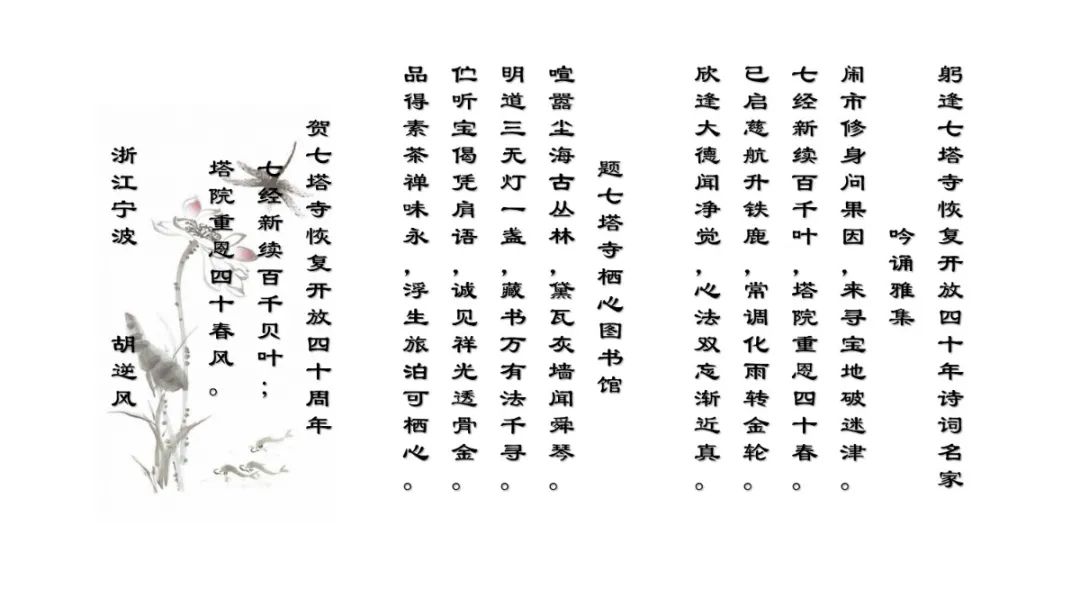 躬逢七塔寺恢复开放四十年诗词名家
吟诵雅集
闹市修身问果因，来寻宝地破迷津。
七经新续百千叶，塔院重恩四十春。
已启慈航升铁鹿，常调化雨转金轮。
欣逢大德闻净觉，心法双忘渐近真。
题七塔寺栖心图书馆
喧嚣尘海古丛林，黛瓦灰墙闻舜琴。
明道三无灯一盏，藏书万有法千寻。
伫听宝偈凭肩语，诚见祥光透骨金。
品得素茶禅味永，浮生旅泊可栖心。
贺七塔寺恢复开放四十周年
七经新续百千贝叶；
塔院重恩四十春风。
浙江宁波 胡逆风